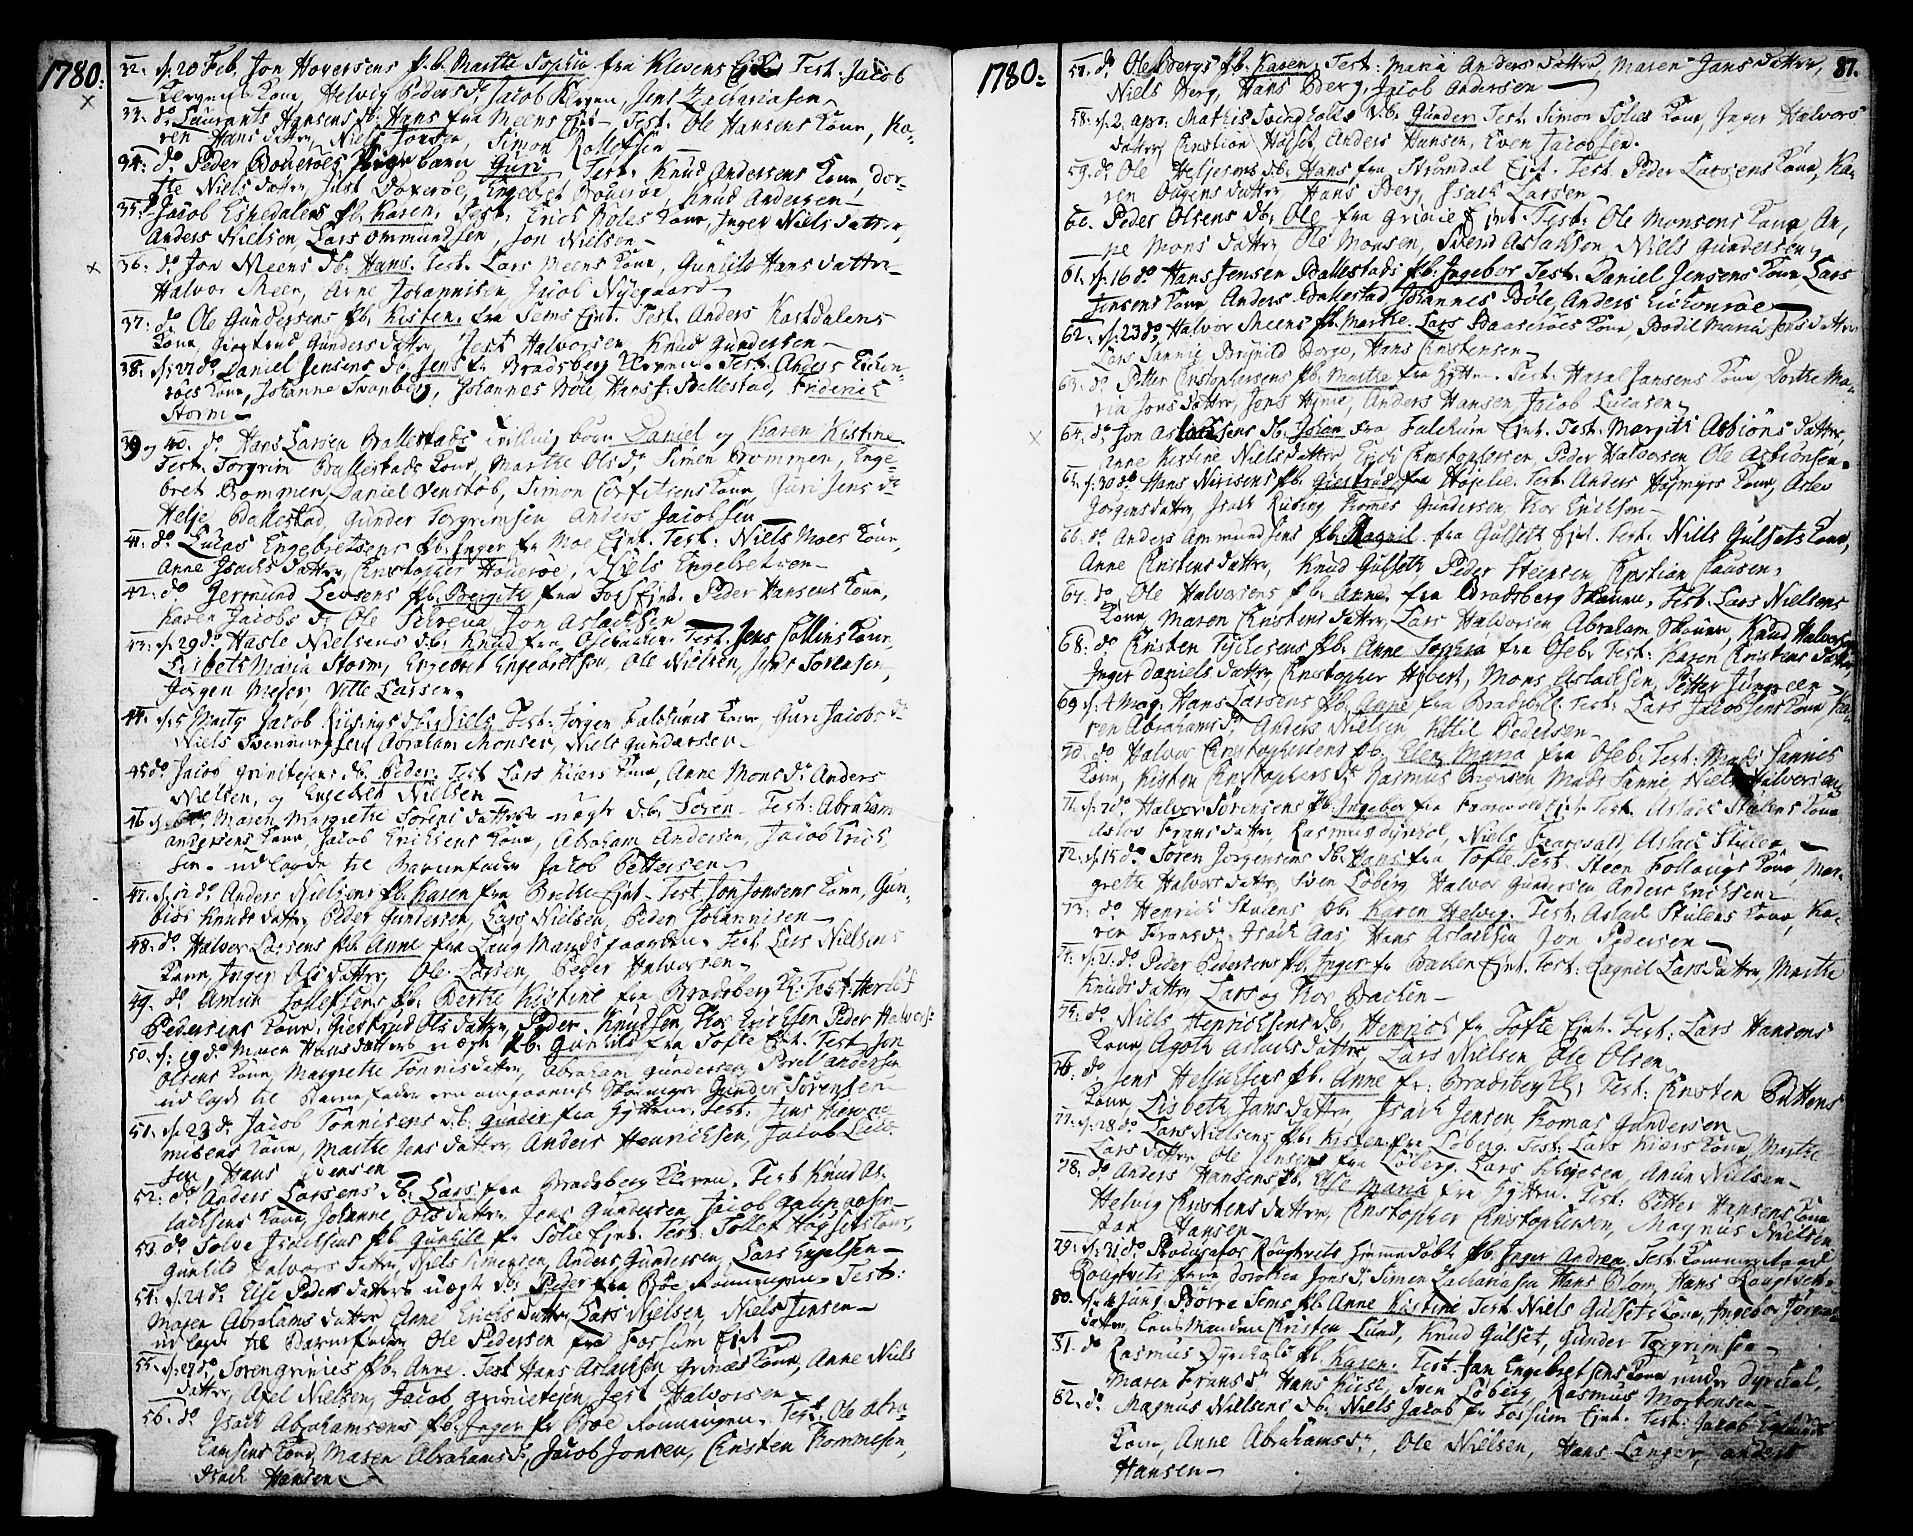 1780.
32. d. 20 Feb. Jon Hoversens p.b. Marthe Sophia fra Klevens Ejed Test: Jacob
Kone, Helvig Peders d. Jacob Klyven, Jens Zachariasen
33. do Laurants Hansens d.b. Hans fra Meens Ejet Test. Ole Hansens Kone, Ka-
ren Hans datter, Niels Joersen, Simon Rollefsen
34. do Peder Boueröes barn Guri Test. Knud Andersens Kone, Dor-
the Niels datter, Just Boueröe, Engebret Boueröe, Knud Andersen
35. Jacob Eskedalens p.b. Karen. Test. Erich Böles Kone, Inger Niels datter,
Anders Nielsen, Lars Ommundsen, Jon Nielsen
36. do Jon Meens d.b. Hans. Test. Lars Meens Kone, Gunild Hans datter
Halvor Meen, Arne Johannisen, Jacob Nyegaard
37. do Ole Gundersens p.b. Kisten. fra Sems Ejet. Test. Anders Kastdalens
Kone, Giertrud Gunders datter, Jest Halvorsen Knud Gundersen
38. d. 27 do Daniel Jensens d.b. Jens fr Bradsberg Kleven. Test: Anders Eichon-
röes Kone, Johanne Svanberg, Johannes Böle, Hans J. Ballestad, Friderich
Storm
39 og 40. do Hans Larsen Ballestads Tvilling börn Daniel og Karen Kistine
Test. Torgrim Ballestads Kone, Marthe Ols d. Simen Bommen, Enge-
bret Bommen, Daniel Venstöb, Simon Corfitsens Kone, Guri Jens d.
Helje Ballestad, Gunder Torgrimsen Anders Jacobsen
41. do Lucas Engebretsens p.b. Inger fr Moe Ejet. Test: Niels Moes Kone,
Anne Isachs datter, Christopher Houeröe, Niels Engebretsen
42. do Germund Levsens p.b. Bergith fra Fos Ejet. Peder Hansens Kone,
Karen Jacobs d. Ole Jon Aslachsen
43. d. 29 do Hasle Nielsens d.b. Knud fra Test. Jens Collins Kone,
Lisbet Maria Storm, Engebret Engebretsen, Ole Nielsen, Jens Sorensen,
Jörgen Mejer, Vette Larsen.
44. d. 5 Martz Jacob Riisings d.b. Niels Test: Jörgen Falchums Kone, Guri Jacobs d.
Niels Svenningsen Abraham Monsen, Niels Gundersen
45 do Jacob Grinitejens d.b. Peder. Test Lars Kiærs Kone, Anne Mons d. Anders
Nielsen, og Engebret Nielsen
46 d. 6 do Maren Margrethe Sorens datters uægte d.b. Soren Test: Abraham
andersens Kone, Jacob Erichsens Kone, Abraham Andersen, Jacob Erich-
sen udlagde til Barnefader Jacob Pettersen
47. d. 12 do Anders Nielsens p.b. Karen fra Ejet. Test. Jon Jonsens Kone, Gun-
bior Knuds datter Peder Gundersen, Lars Nielsen, Peder Johannisen
48. do Halvor Larsens p.b. Anne fra Laug Mands gaarden. Test Lars Nielsens
Kone, Inger Ols datter, Ole Larsen, Peder Halvorsen
49. do Amun Tollefsens p.b. Berthe Kistine fra Bradsberg Kl. Test: Herlof
Pedersens Kone. Giertrud Ols datter, Peder Knudsen, Thor Erichsen Peder Halvors:
50. d. 19 do Maren Hans datters uægte p.b. Gunhild fra Tofte Ejet. Test Jon
Olsens Kone, Margrethe Tönnis datter, Abraham Gundersen, Poul Andersen
udlagde til Barnefader een omgaaende Skomager Gunder Sörensen
51. d. 23 do Jacob Tönnisens d.b. Gunder fra Hytten. Test. Jens
Kone, Marthe Jens datter, Anders Henrichsen, Jacob
sen, Hans Jensen
52. do Anders Larsens d.b. Lars fra Bradsberg Kleven. Test Knud As-
lachsens Kone, Johanne Ols datter Jens Gundersen, Jacob
53. do Solve Isachsens p.b. Gunhild fr Solie Ejet. Test: Tollef Högsets Kone,
Gunild Halvors datter, Niels Simensen, Anders Gundersen, Lars Engelsen
54. d. 24 do Else Peders datters uægte d.b. Peder fra Böe Romningen. Test:
Maren Abrahams datter Anne Erichs datter, Lars Nielsen, Niels Jensen
udlagde til Barnefader Ole Pedersen fra Fossum Ejet
55. d. 27 do Soren Grinies p.b. Anne. Test Hans Aslachsen Grinies Kone, Anne Niels
datter, Axel Nielsen, Jacob Grinietejen, Jest Halvorsen
56. do Isach Abrahamsens p.b. Inger fr Böe Romningen. Test. Ole Abra-
hamsens Kone, Maren Abrahams d. Jacob Jonsen, Christen Tommesen,
Isach Hansen
1780.
87.
57. do Ole Bergs p.b. Karen. Test. Maria Anders datter, Maren Jans datter,
Niels Berg, Hans Berg, Jacob Andersen
58. d. 2. Apr: Mathis d.b. Gunder. Test. Simon Solies Kone, Inger Halvors
datter, Kristian Högset, Anders Hansen, Even Jacobsen.
59. do Ole Heljesens d.b. Hans fra Strömdal Ejet. Test. Peder Larsens Kone, Ka-
ren Ougens datter, Hans Berg, Isach Larsen
60. Peder Olsens d.b. Ole fra Grinie Ejet. Test. Ole Monsens Kone, An-
ne Mons datter, Ole Monsen, Svend Aslaksen Niels Gundersen
61. d. 16 do Hans Jensen Ballestads p.b. Ingebor Test. Daniel Jensens Kone, Lars
Jensens Kone, Anders Ballestad, Johannes Böle, Anders Eichonröe
62. d. 23 do Halvor Meens p.b. Marthe. Lars Kone, Bodil Maria Jens datter
Lars Sannie Brynild Borge, Hans Christensen
63. do Petter Christophersens p.b. Marthe fra Hytten. Test. Haral Jansens Kone, Dorthe Ma-
ria Jons datter, Jens Anders Hansen Jacob Lucasen
64. do Jon Aslachsens d.b. Johan fra Falchum Ejet. Test. Margith Asbiöns datter,
Anne Kistine Niels datter Erich Christophersen Peder Halvorsen Ole Asbiönsen
65. d. 30 do Hans Nirisens p.b. Giertrud fra Höjelie. Test. Anders Höjmyrs Kone, Aslev
Jörgens datter, Isach Riising Thomes Gundersen, Thor Erichsen
66. do Anders Ammundsens p.b. Ragnil. fra Gulseth Ejet. Test. Niels Gulsets Kone,
Anne Christens datter, Knud Gulseth Peder Steensen Christian Clausen.
67. do Ole Halvorsens p.b. Anne. fra Bradsberg Skouen. Test: Lars Nielsens
Kone, Maren Christens datter, Lars Halvorsen Abraham Skouen, Knud Halvorsen
68. do Christen Tychesens p.b. Anne Sophia fra Oseb. Test: Karen Christens datter,
Inger Daniels datter, Christopher Mons Aslachsen, Petter Jungreen
69 d. 4 May. Hans Larsens p.b. Anne fra Bradsb. Kl. Test: Lars Jacobsens Kone Ka-
ren Abrahams d. Anders Nielsen Kittil Pedelsen
70. do Halvor Christophersens p.b. Elen Maria fra Oseb. Test: Mads Sannies
Kone, Kisten Christophers d. Rasmus Mads Sannie, Niels Halvorsen
71. d. 7 do Halvor Sörensens p.b. Ingebor fra Faarevold Ejet Test. Aslach Stulens Kone
Aslov Frans datter, Rasmus Dyrcol, Niels Faarevald, Aslach Stulen
72. d. 15 do Sören Jorgensens d.b. Hans fra Tofte Test. Steen Follaugs Kone, Mar-
grethe Halvors datter, Sven Löberg Halvor Gundersen Anders Erichsen
73. do Henrich Stulens p.b. Karen Helvig. Test: Aslach Stulens Kone, Ka-
ren Frans d. Isach Aas, Hans Aslachsen Jon Pedersen
74. d. 21. do Peder Pedersens p.b. Inger fr Bachen Ejet. Test: Ragnil Lars datter, Marthe
Knuds datter, Lars og Thor Bachen
75. do Niels Henrichsens d.b. Henrich fr Tofte Ejet. Test: Lars Hansens
Kone, Agoth Aslachs datter, Lars Nielsen Ole Olsen
76. do Jens Heljulsens p.b. Anne fr: Bradsberg Kl: Test: Christen Buttens
Kone, Lisbeth Jans datter, Isach Jensen Thomas Gundersen
77. d. 28 do Lars Nielsens p.b. Kisten fra Löberg. Test. Lars Kiærs Kone, Marthe
Lars datter Ole Jensen fra Löberg. Lars Amun Nielsen
78. do Anders Hansens p.b. Else Maria fra Hytten. Test: Petter Hansens Kone
Helvig Christens datter, Christopher Christophersen, Magnus Nielsen
Jan Hansen
79. d. 31 do Rougtvets hjemedöbte p.b. Inger Andrea, Test. Kammerraad
Rougtvets frue Dorothea Jons d. Simen Zachariasen Hans Blom, Hans Rougtvet
80. d. 4 Junj Börre Sems p.b. Anne Kistine Test Niels Gulsets Kone, Ingebor Sörens
datter, Lensmanden Christen Lund, Knud Gulset, Gunder Torgrimsen
81. do Rasmus Dyrcols p.b. Karen. Test. Jan Engebretsens Kone under Dyrcol,
Maren Frans d. Hans Kise, Sven Löberg, Rasmus Mortensen
82. do Magnus Nielsens d.b. Niels Jacob fr Fossum Ejet. Test: Jacob
Kone, Anne Abrahams d. Ole Nielsen, Hans Langer, Anders
Hansen